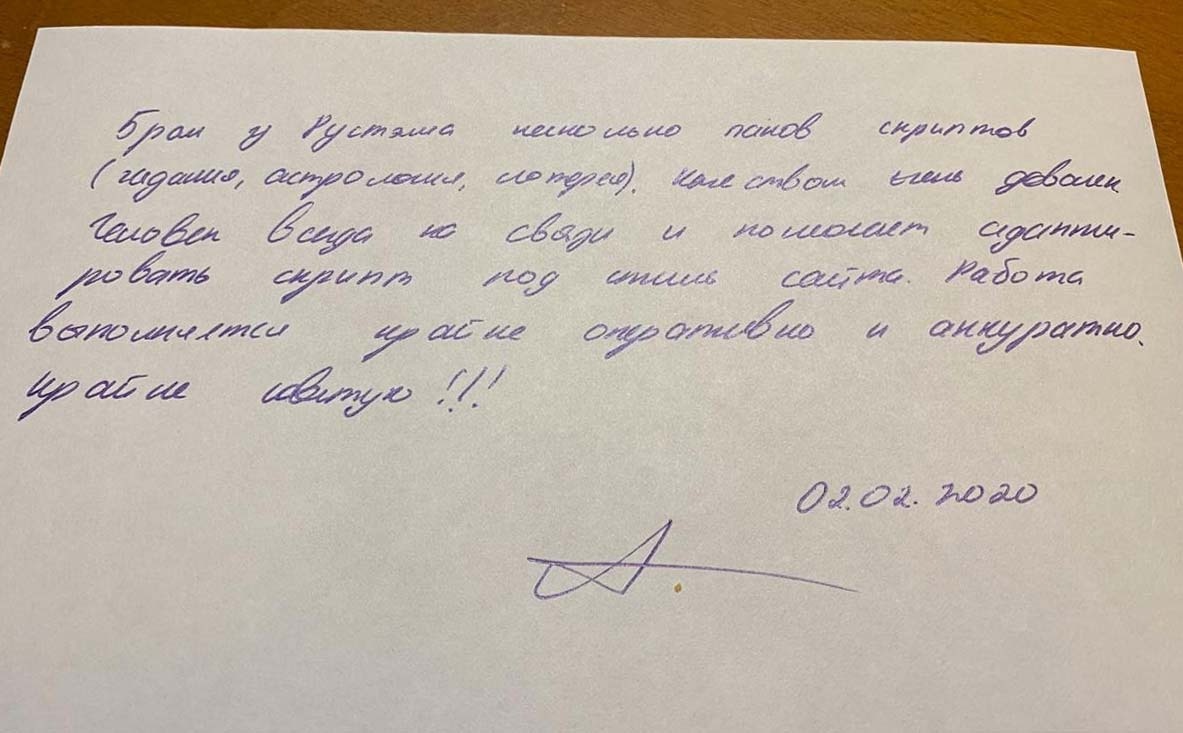 Брал у Рустэма несколько паков скриптов
(гадания, астрология, лотерея). Качеством очень доволен
Человек всегда на связи и помогает адапти-
ровать скрипт под стиль сайта. Работа
выполняется крайне оперативно и аккуратно.
Крайне советую!!!
02.02.2020